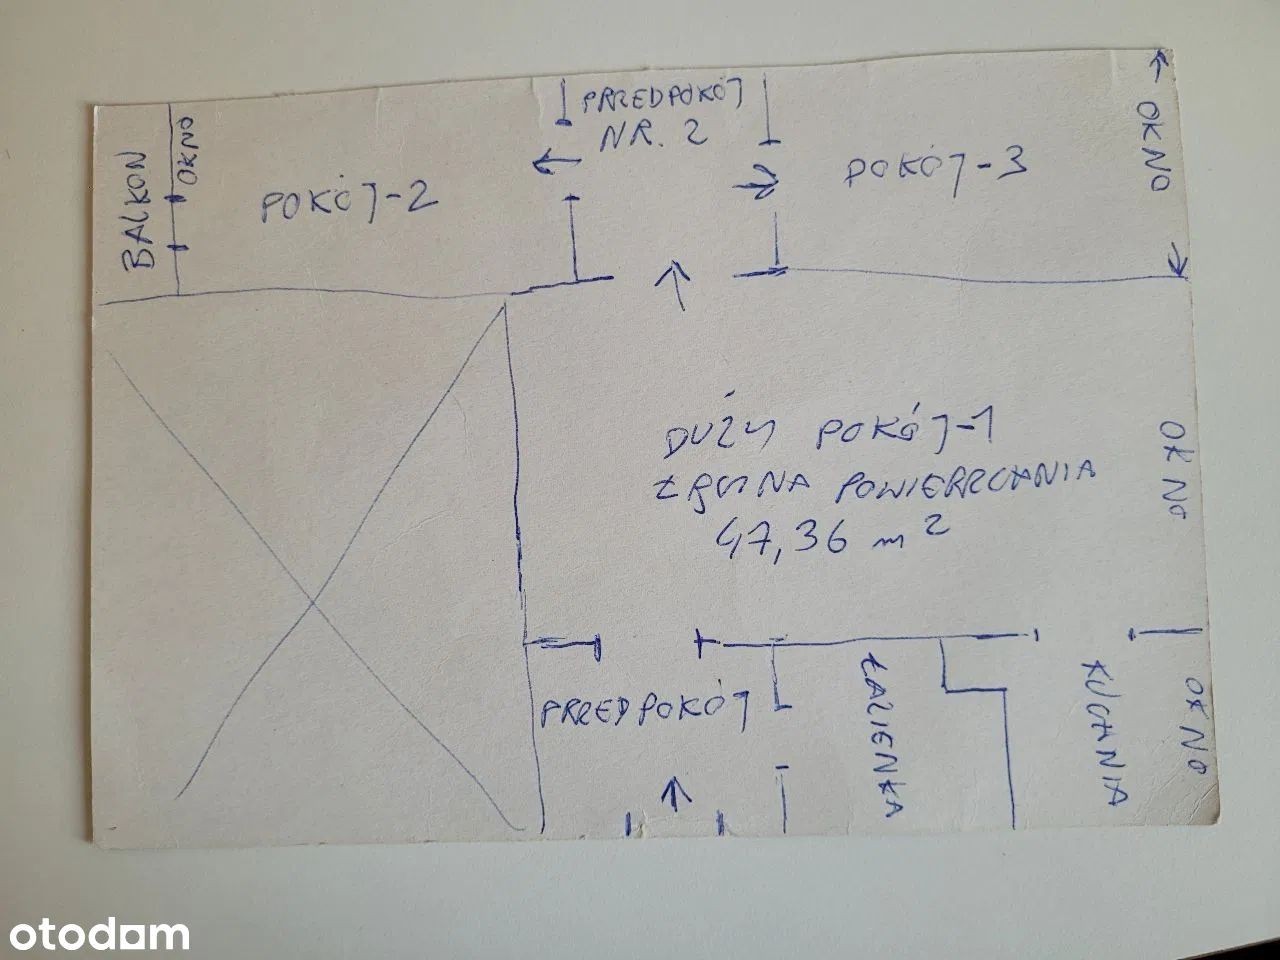 PRZEDPOKÓJ
NR. 2
BALKON
OKNO
POKÓJ-2
POKÓJ-3
OKNO
DUŻY POKÓJ-1
ŁĄCZNA POWIERZCHNIA
47,36 m²
OKNO
PRZEDPOKÓJ
ŁAZIENKA
KUCHNIA
OKNO
otodom